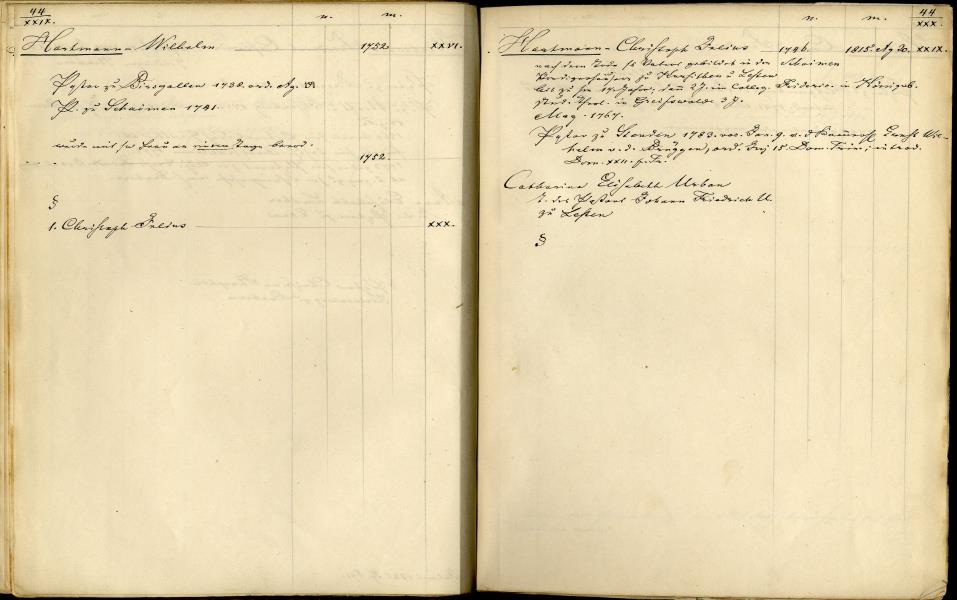 44
XXIX.
n. m.
Hartmann - Wilhelm 1752. XXVI.
Pastor zu 1738. ord. Ag.
P. zu Schaimen 1741.
wurde mit fr Frau an einem Tage beerd.
1752.
§
1. Christoph Julius XXX.
44
XXX.
n. m.
Hartmann - Christoph Julius 1746. 1815. Ag 20. XXIX.
nach dem Tode fs Vaters gebildet in den Schaimen
zu u Lesten
bis zu fr Jahre, dann 2 J. im Colleg. Frideric. in Königsb.
stud. Theol. in Greifswalde 3 J.
Mag. 1767.
Pastor zu Stenden 1783. voc. Jan. 9. v. d. Ernst Wil-
helm v. d. Brüggen, ord. 15. Dom. Trin., introd.
Dom. XXII. p. Tr.
Catharina Elisabeth Urban
T. des Pastors Johann Friedrich U.
zu Lesten
§